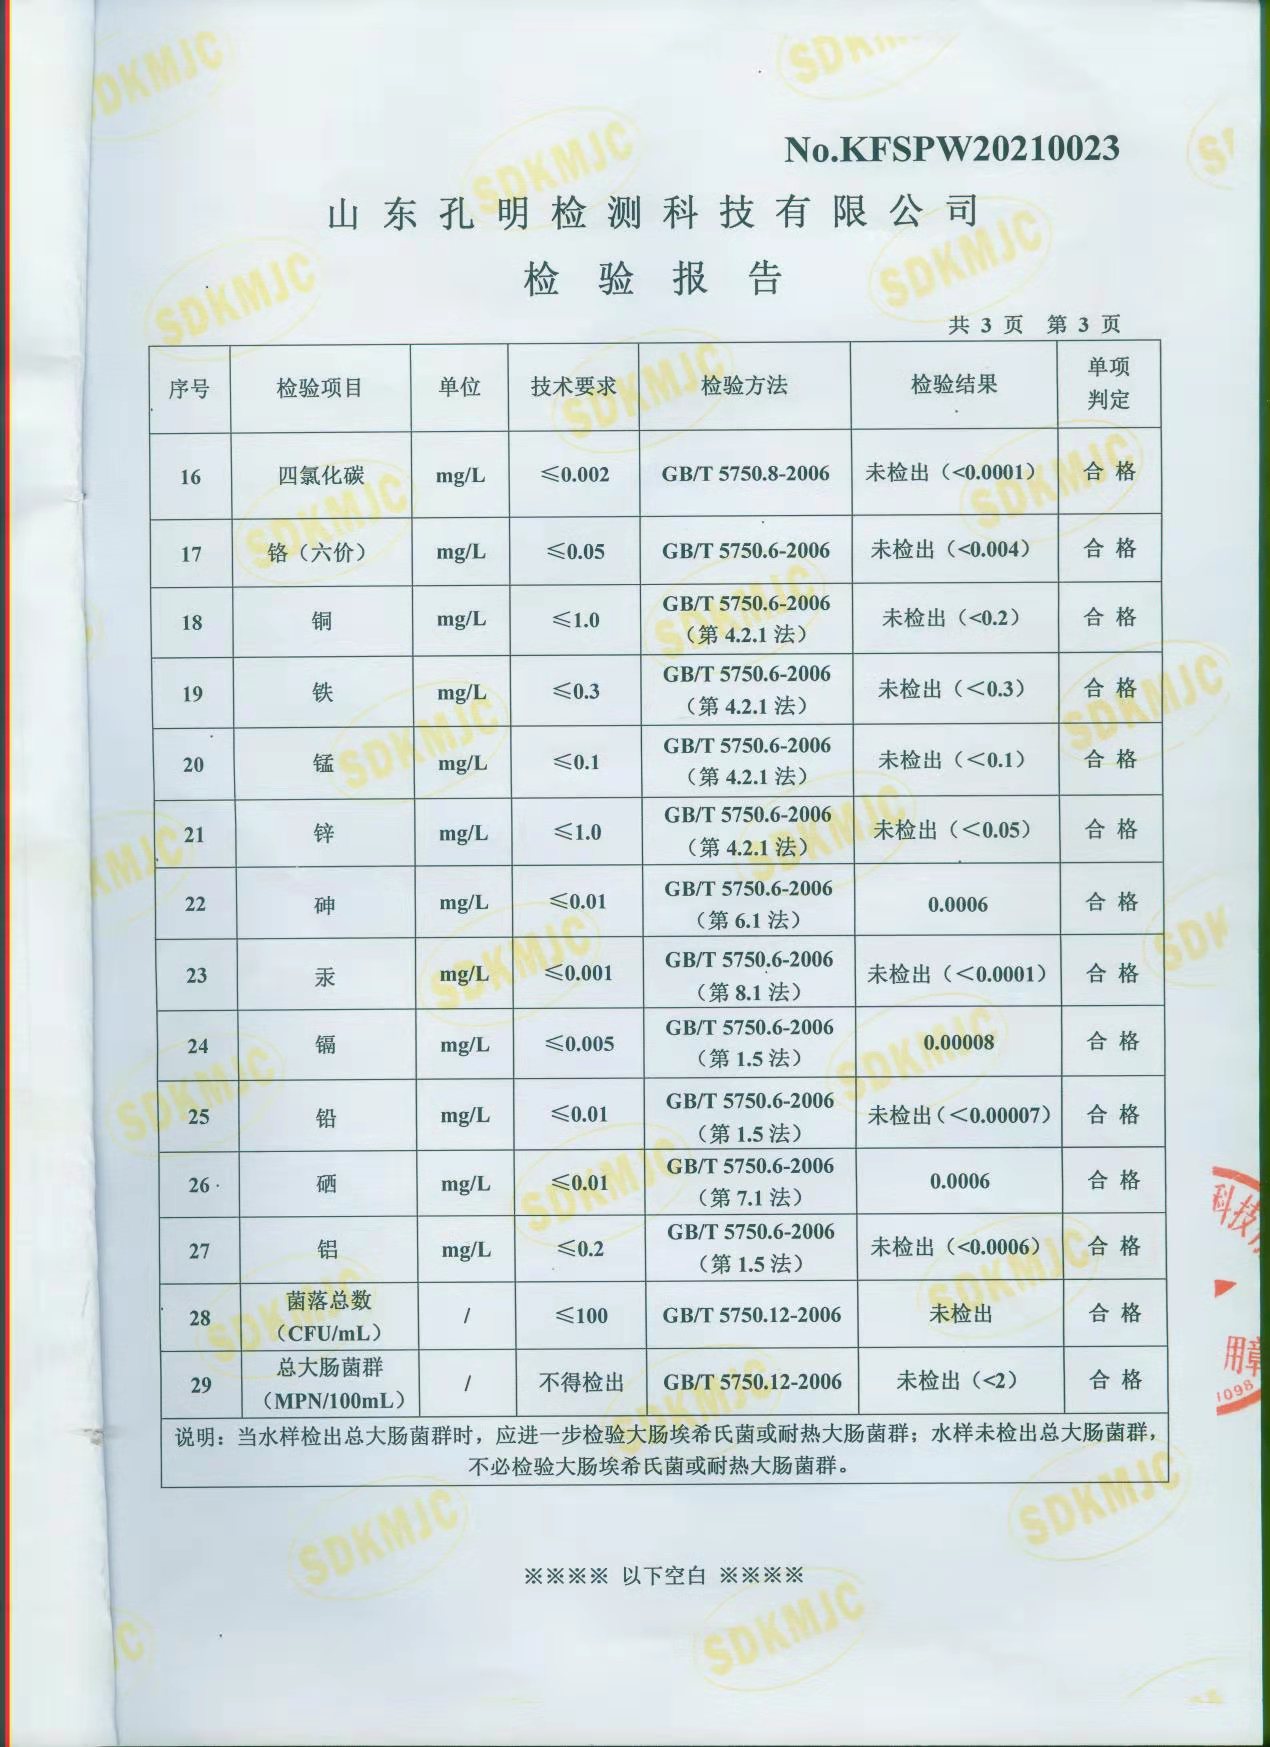 No.KFSPW20210023
山东孔明检测科技有限公司
检验报告
共 3 页 第 3 页
序号 检验项目 单位 技术要求 检验方法 检验结果 单项判定
16 四氯化碳 mg/L ≤0.002 GB/T 5750.8-2006 未检出（<0.0001） 合格
17 铬（六价） mg/L ≤0.05 GB/T 5750.6-2006 未检出（<0.004） 合格
18 铜 mg/L ≤1.0 GB/T 5750.6-2006（第 4.2.1 法） 未检出（<0.2） 合格
19 铁 mg/L ≤0.3 GB/T 5750.6-2006（第 4.2.1 法） 未检出（＜0.3） 合格
20 锰 mg/L ≤0.1 GB/T 5750.6-2006（第 4.2.1 法） 未检出（＜0.1） 合格
21 锌 mg/L ≤1.0 GB/T 5750.6-2006（第 4.2.1 法） 未检出（＜0.05） 合格
22 砷 mg/L ≤0.01 GB/T 5750.6-2006（第 6.1 法） 0.0006 合格
23 汞 mg/L ≤0.001 GB/T 5750.6-2006（第 8.1 法） 未检出（＜0.0001） 合格
24 镉 mg/L ≤0.005 GB/T 5750.6-2006（第 1.5 法） 0.00008 合格
25 铅 mg/L ≤0.01 GB/T 5750.6-2006（第 1.5 法） 未检出（＜0.00007） 合格
26 硒 mg/L ≤0.01 GB/T 5750.6-2006（第 7.1 法） 0.0006 合格
27 铝 mg/L ≤0.2 GB/T 5750.6-2006（第 1.5 法） 未检出（<0.0006） 合格
28 菌落总数（CFU/mL） / ≤100 GB/T 5750.12-2006 未检出 合格
29 总大肠菌群（MPN/100mL） / 不得检出 GB/T 5750.12-2006 未检出（<2） 合格
说明：当水样检出总大肠菌群时，应进一步检验大肠埃希氏菌或耐热大肠菌群；水样未检出总大肠菌群，
不必检验大肠埃希氏菌或耐热大肠菌群。
※※※※ 以下空白 ※※※※
科技
用章
1098
SDKMJC